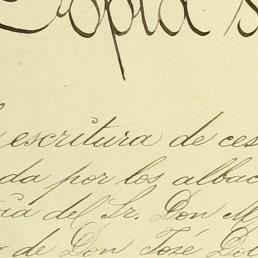 Copia s
escritura de ces
da por los albac
cia del Sr. Don M
de Don José Dol